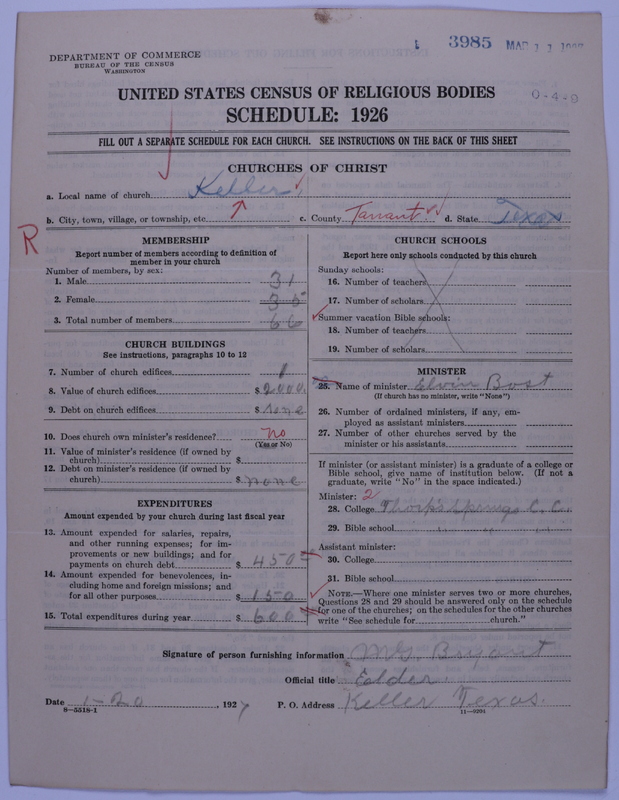 3985 MAR 11
DEPARTMENT OF COMMERCE
BUREAU OF THE CENSUS
WASHINGTON
UNITED STATES CENSUS OF RELIGIOUS BODIES
0-4-9
SCHEDULE: 1926
FILL OUT A SEPARATE SCHEDULE FOR EACH CHURCH. SEE INSTRUCTIONS ON THE BACK OF THIS SHEET
CHURCHES OF CHRIST
a. Local name of church Keller
b. City, town, village, or township, etc. c. County Tarrant d. State Texas
R
MEMBERSHIP
Report number of members according to definition of
member in your church
Number of members, by sex:
1. Male 31
2. Female 35
3. Total number of members 66
CHURCH BUILDINGS
See instructions, paragraphs 10 to 12
7. Number of church edifices 1
8. Value of church edifices $ 2000.
9. Debt on church edifices $ none
10. Does church own minister's residence? no
(Yes or No)
11. Value of minister's residence (if owned by
church) $
12. Debt on minister's residence (if owned by
church) $ none
EXPENDITURES
Amount expended by your church during last fiscal year
13. Amount expended for salaries, repairs,
and other running expenses; for im-
provements or new buildings; and for
payments on church debt $ 450
14. Amount expended for benevolences, in-
cluding home and foreign missions; and
for all other purposes $ 150
15. Total expenditures during year $ 600
CHURCH SCHOOLS
Report here only schools conducted by this church
Sunday schools:
16. Number of teachers
17. Number of scholars
Summer vacation Bible schools:
18. Number of teachers
19. Number of scholars
MINISTER
25. Name of minister Elvin Bost
(If church has no minister, write "None")
26. Number of ordained ministers, if any, em-
ployed as assistant ministers
27. Number of other churches served by the
minister or his assistants
If minister (or assistant minister) is a graduate of a college or
Bible school, give name of institution below. (If not a
graduate, write "No" in the space indicated.)
Minister: 2
28. College Thorp Springs C. C.
29. Bible school
Assistant minister:
30. College
31. Bible school
NOTE.—Where one minister serves two or more churches,
Questions 28 and 29 should be answered only on the schedule
for one of the churches; on the schedules for the other churches
write "See schedule for church."
Signature of person furnishing information M G. Bryant
Official title Elder.
Date 1-20, 1927 P. O. Address Keller Texas.
8—5518-1 11—9204